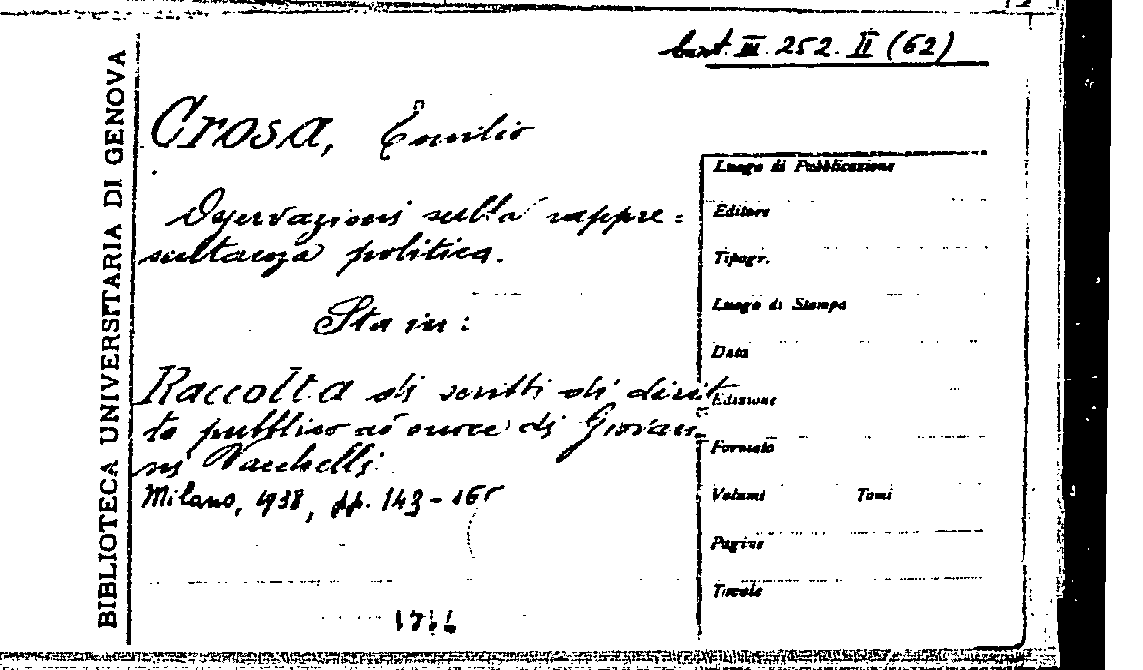 BIBLIOTECA UNIVERSITARIA DI GENOVA
III. 252. II (62)
Crosa, Emilio
Osservazioni sulla rappre=
sentanza politica.
Sta in:
Raccolta di scritti di dirit
to pubblico in onore di Giovan-
ni Vacchelli
Milano, 1938, pp. 143-165
Luogo di Pubblicazione
Editore
Tipogr.
Luogo di Stampa
Data
Edizione
Formato
Volumi Tomi
Pagine
Titolo